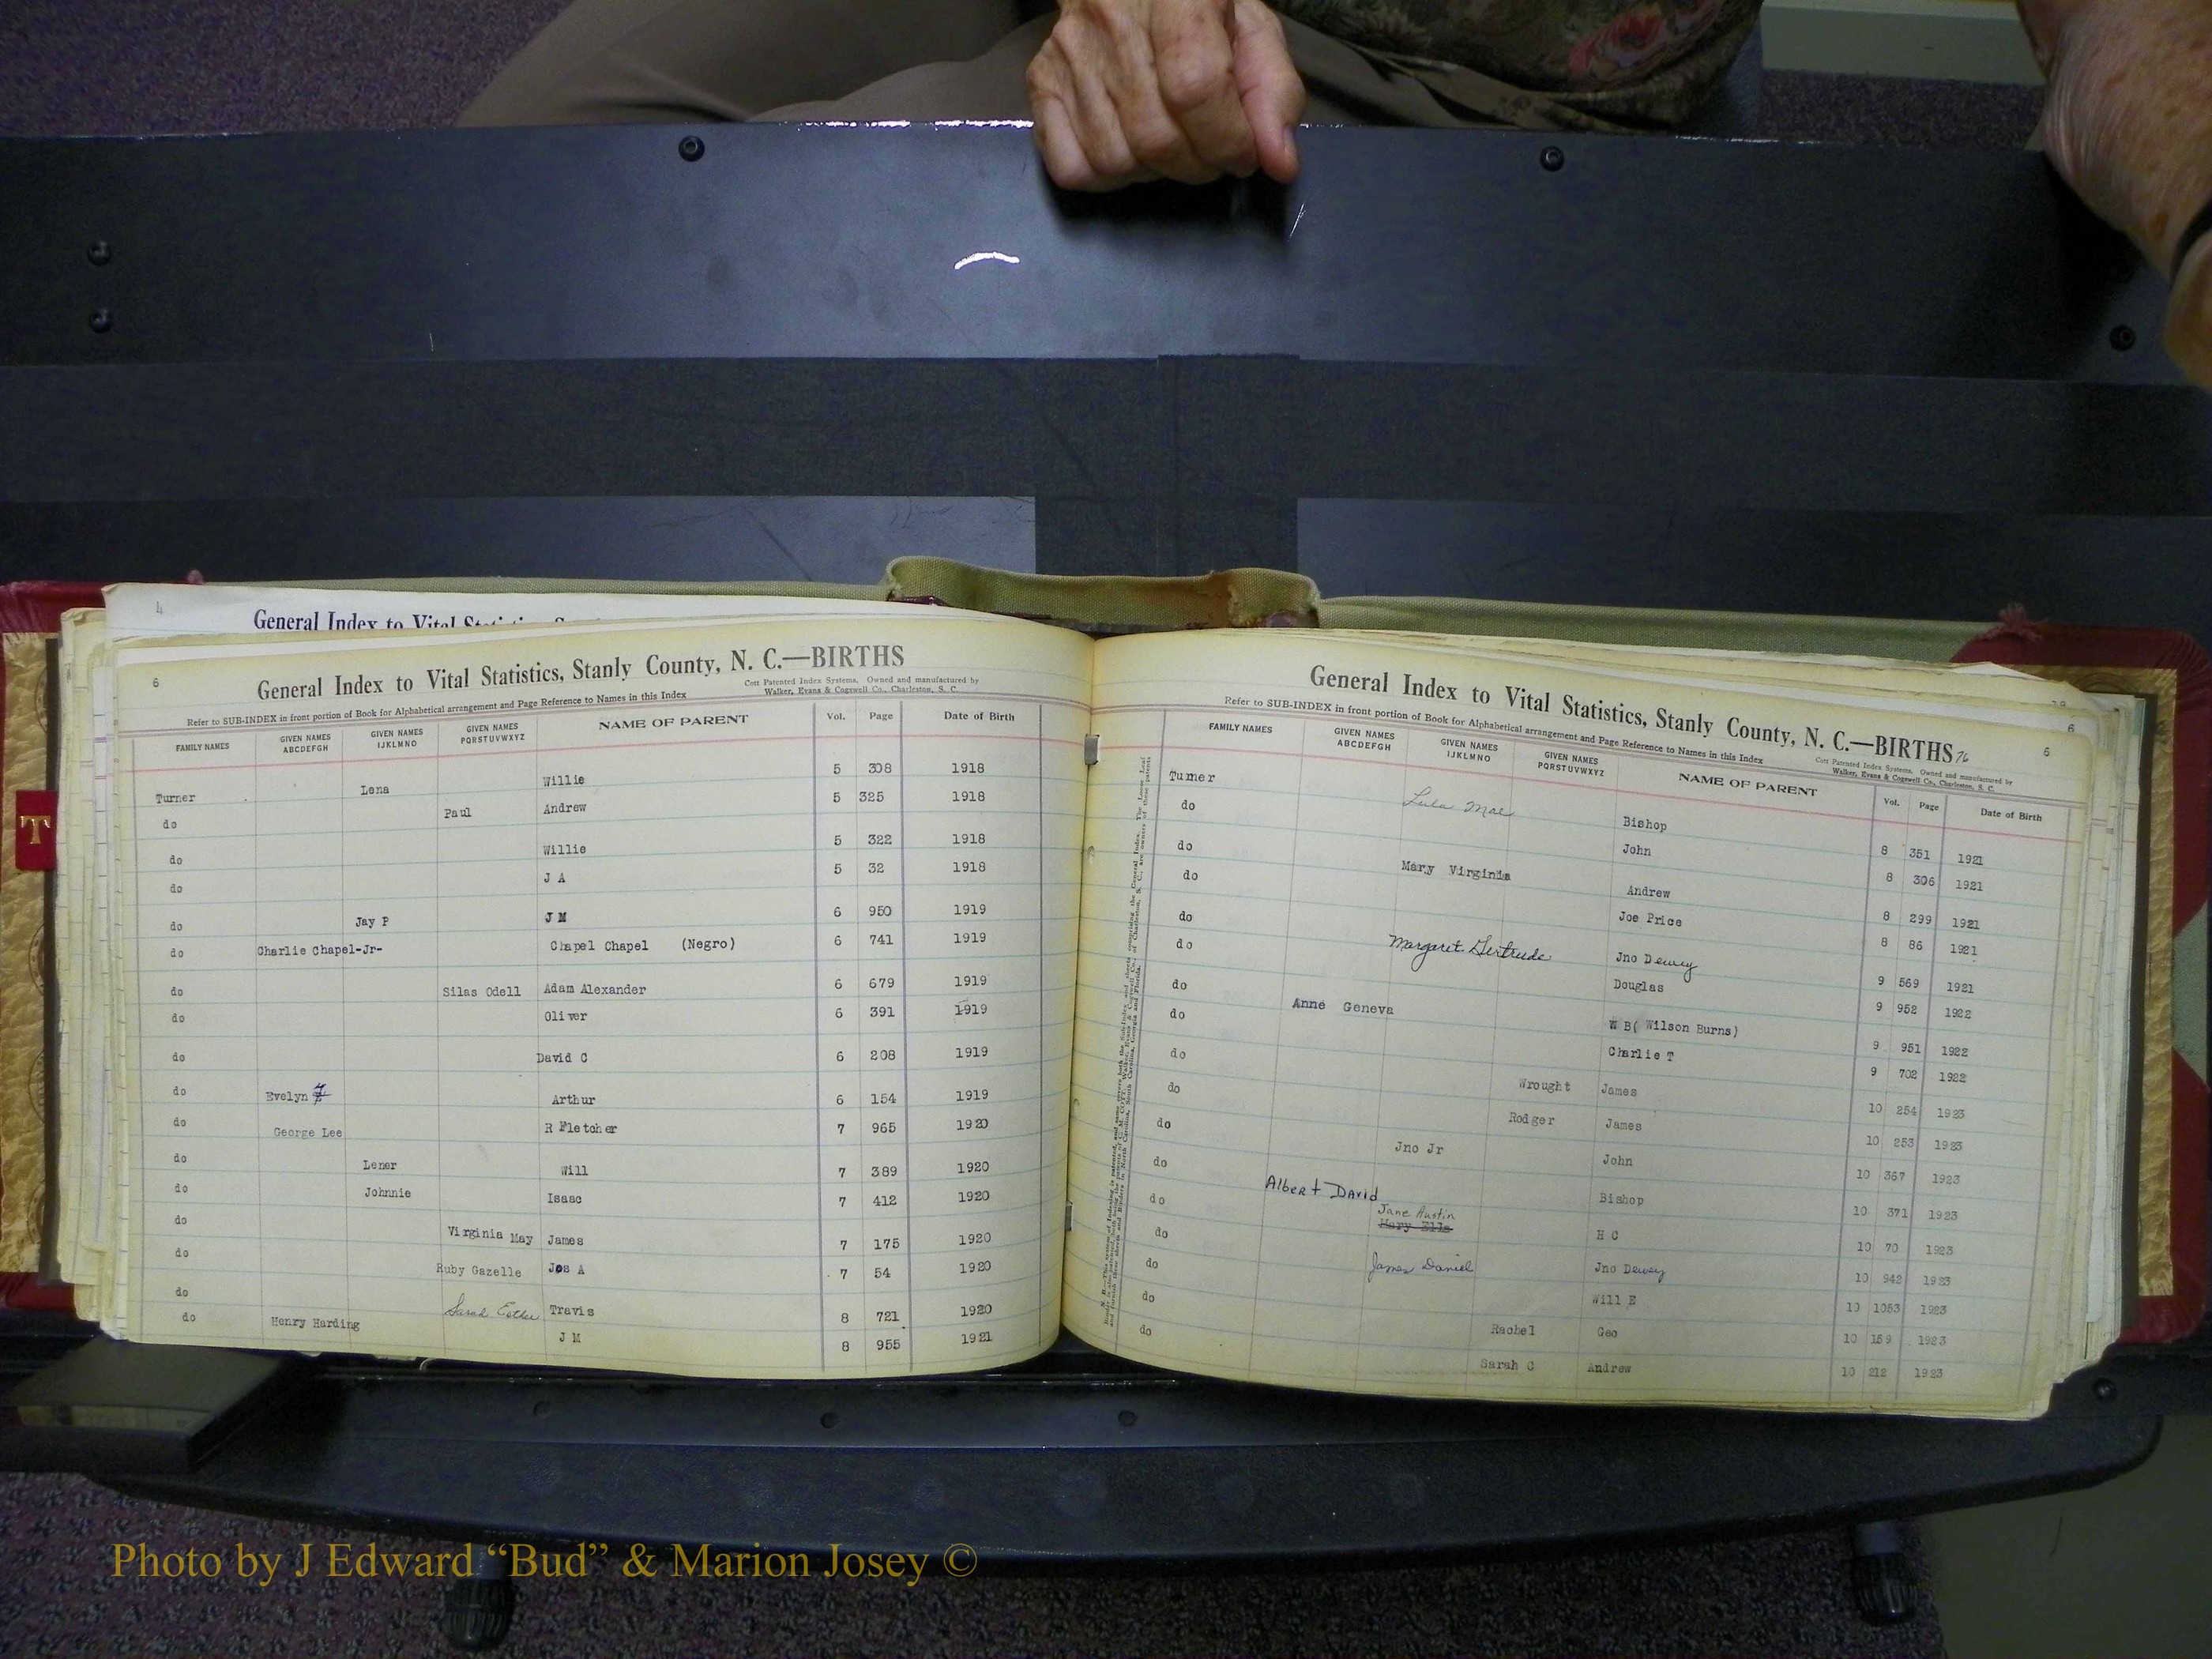 4
General Index to Vital Statistics
6
General Index to Vital Statistics, Stanly County, N. C.—BIRTHS
Cott Patented Index Systems. Owned and manufactured by
Walker, Evans & Cogswell Co., Charleston, S. C.
Refer to SUB-INDEX in front portion of Book for Alphabetical arrangement and Page Reference to Names in this Index
FAMILY NAMES GIVEN NAMES ABCDEFGH GIVEN NAMES IJKLMNO GIVEN NAMES PQRSTUVWXYZ NAME OF PARENT Vol. Page Date of Birth
Turner Lena Willie 5 308 1918
do Paul Andrew 5 325 1918
do Willie 5 322 1918
do J A 5 32 1918
do Jay P J M 6 950 1919
do Charlie Chapel-Jr- Chapel Chapel (Negro) 6 741 1919
do Silas Odell Adam Alexander 6 679 1919
do Oliver 6 391 1919
do David C 6 208 1919
do Evelyn Arthur 6 154 1919
do George Lee R Fletcher 7 965 1920
do Lener Will 7 389 1920
do Johnnie Isaac 7 412 1920
do Virginia May James 7 175 1920
do Ruby Gazelle Jos A 7 54 1920
do Sarah Esther Travis 8 721 1920
do Henry Harding J M 8 955 1921
T
General Index to Vital Statistics, Stanly County, N. C.—BIRTHS 76
6
6
Cott Patented Index Systems. Owned and manufactured by
Walker, Evans & Cogswell Co., Charleston, S. C.
Refer to SUB-INDEX in front portion of Book for Alphabetical arrangement and Page Reference to Names in this Index
FAMILY NAMES GIVEN NAMES ABCDEFGH GIVEN NAMES IJKLMNO GIVEN NAMES PQRSTUVWXYZ NAME OF PARENT Vol. Page Date of Birth
Turner Lula Mae Bishop 8 351 1921
do John 8 306 1921
do Mary Virginia Andrew 8 299 1921
do Joe Price 8 86 1921
do Margaret Gertrude Jno Dewey 9 569 1921
do Douglas 9 952 1922
do Anne Geneva W B( Wilson Burns) 9 951 1922
do Charlie T 9 702 1922
do Wrought James 10 254 1923
do Rodger James 10 253 1923
do Jno Jr John 10 367 1923
do Albert David Bishop 10 371 1923
do Jane Austin Mary Ella H C 10 70 1923
do James Daniel Jno Dewey 10 942 1923
do Will E 10 1053 1923
do Rachel Geo 10 159 1923
do Sarah C Andrew 10 212 1923
Photo by J Edward “Bud” & Marion Josey ©